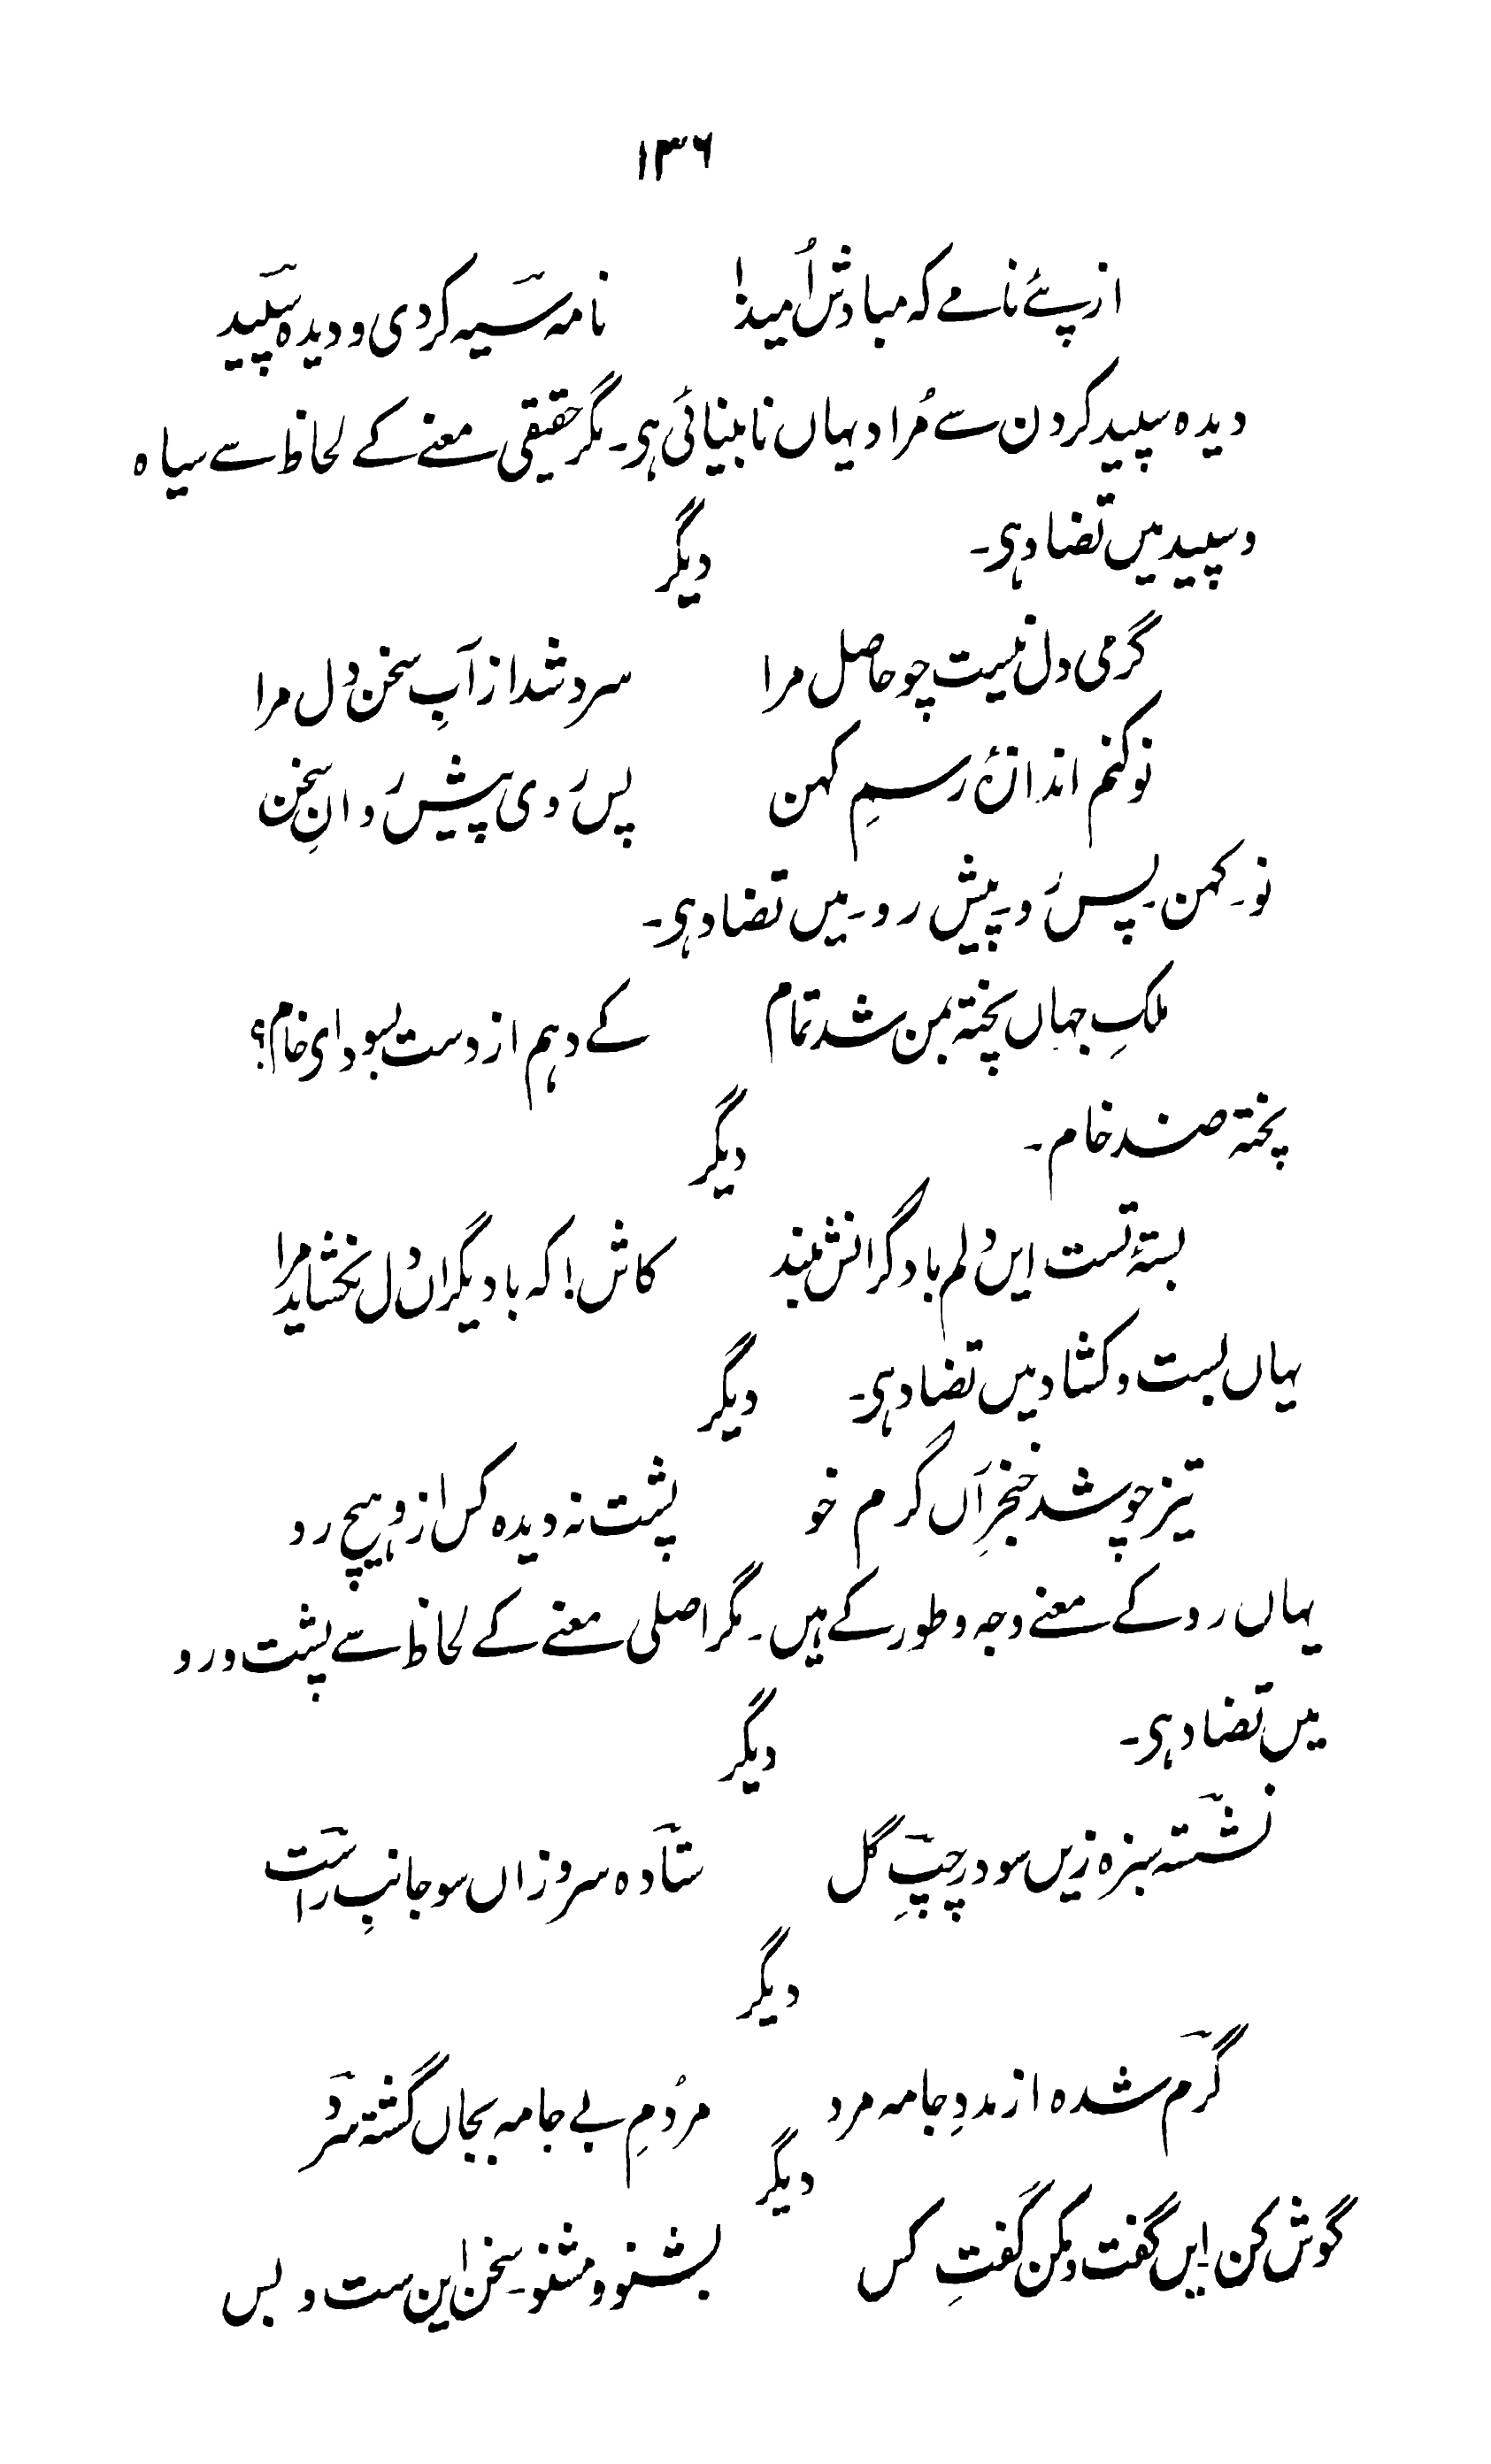 ۱۳۶
از پئے نامے کہ مبادش اُمید! نامہ سیہ کردی و دیدہ سپید
دیدہ سپید کردن سے مُراد یہاں نابینائی ہی۔ مگر حقیقی معنے کے لحاظ سے سیاہ
و سپید میں تضاد ہی۔ دیگر
گرمی دل نیست چو حاصل مرا سرد شد از آبِ سخن دل مرا
نو کنم اندازۂ رسمِ کہن پس رَوی پیش رَوانِ سخن
نو۔ کہن۔ پس رَو۔ پیش رو۔ میں تضاد ہی۔
ملکِ جہاں پختہ بمن شد تمام کے دہم از دست بسودای خام؟
پختہ ضد خام۔ دیگر
بستۂ تست ایں دلم با دگرانش مبند کاش! کہ با دیگراں دل نکشاید مرا
یہاں بست و کشاد میں تضاد ہی۔ دیگر
تیز چو شد خنجرِ آں گرم خو پشت نہ دیدہ کس ازو ہیچ رو
یہاں رو کے معنے وجہ و طور کے ہیں۔ مگر اصلی معنے کے لحاظ سے پشت و رو
میں تضاد ہی۔ دیگر
نشستہ سبزہ زیں سو در چپِ گل ستادہ سرو زاں سو جانبِ راست
دیگر
گرم شدہ از مددِ جامہ مرد مردُمِ بے جامہ بجاں گشتہ سرد
دیگر
گوش کن ایں گفت و مکن گفتِ کس بشنو و مشنو۔ سخن این ست و بس